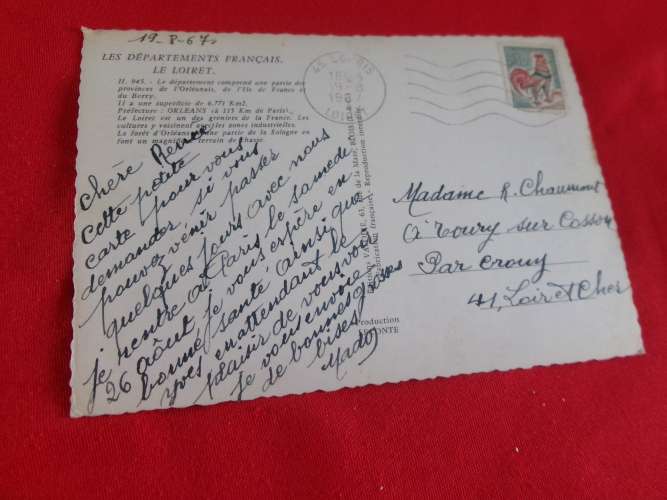 19-8-67
LES DÉPARTEMENTS FRANÇAIS.
LE LOIRET.
II. 945. - Le département comprend une partie des
provinces de l'Orléanais, de l'Ile de France et
du Berry.
Il a une superficie de 6.771 Km2.
Préfecture : ORLÉANS (à 115 Km de Paris).
Le Loiret est un des greniers de la France. Les
cultures y voisinent avec les zones industrielles.
La forêt d'Orléans et une partie de la Sologne en
font un magnifique terrain de chasse.
chère Renée
Cette petite
carte pour vous
demander si vous
pouvez venir passer
quelques jours avec nous
je rentre à Paris le samedi
26 août je vous espère en
bonne santé ainsi que
Yves en attendant le
plaisir de vous voir
je vous envoie
de bonnes grosses
bises
Mado
Production
LECONTE
45
LOIRET
Madame R. Chaumont
à Toury sur Cosson
Par Crouy
41, Loir et Cher